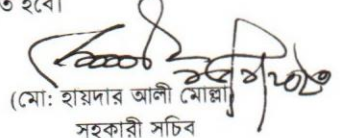 হবে।
(মো: হায়দার আলী মোল্লা)
সহকারী সচিব